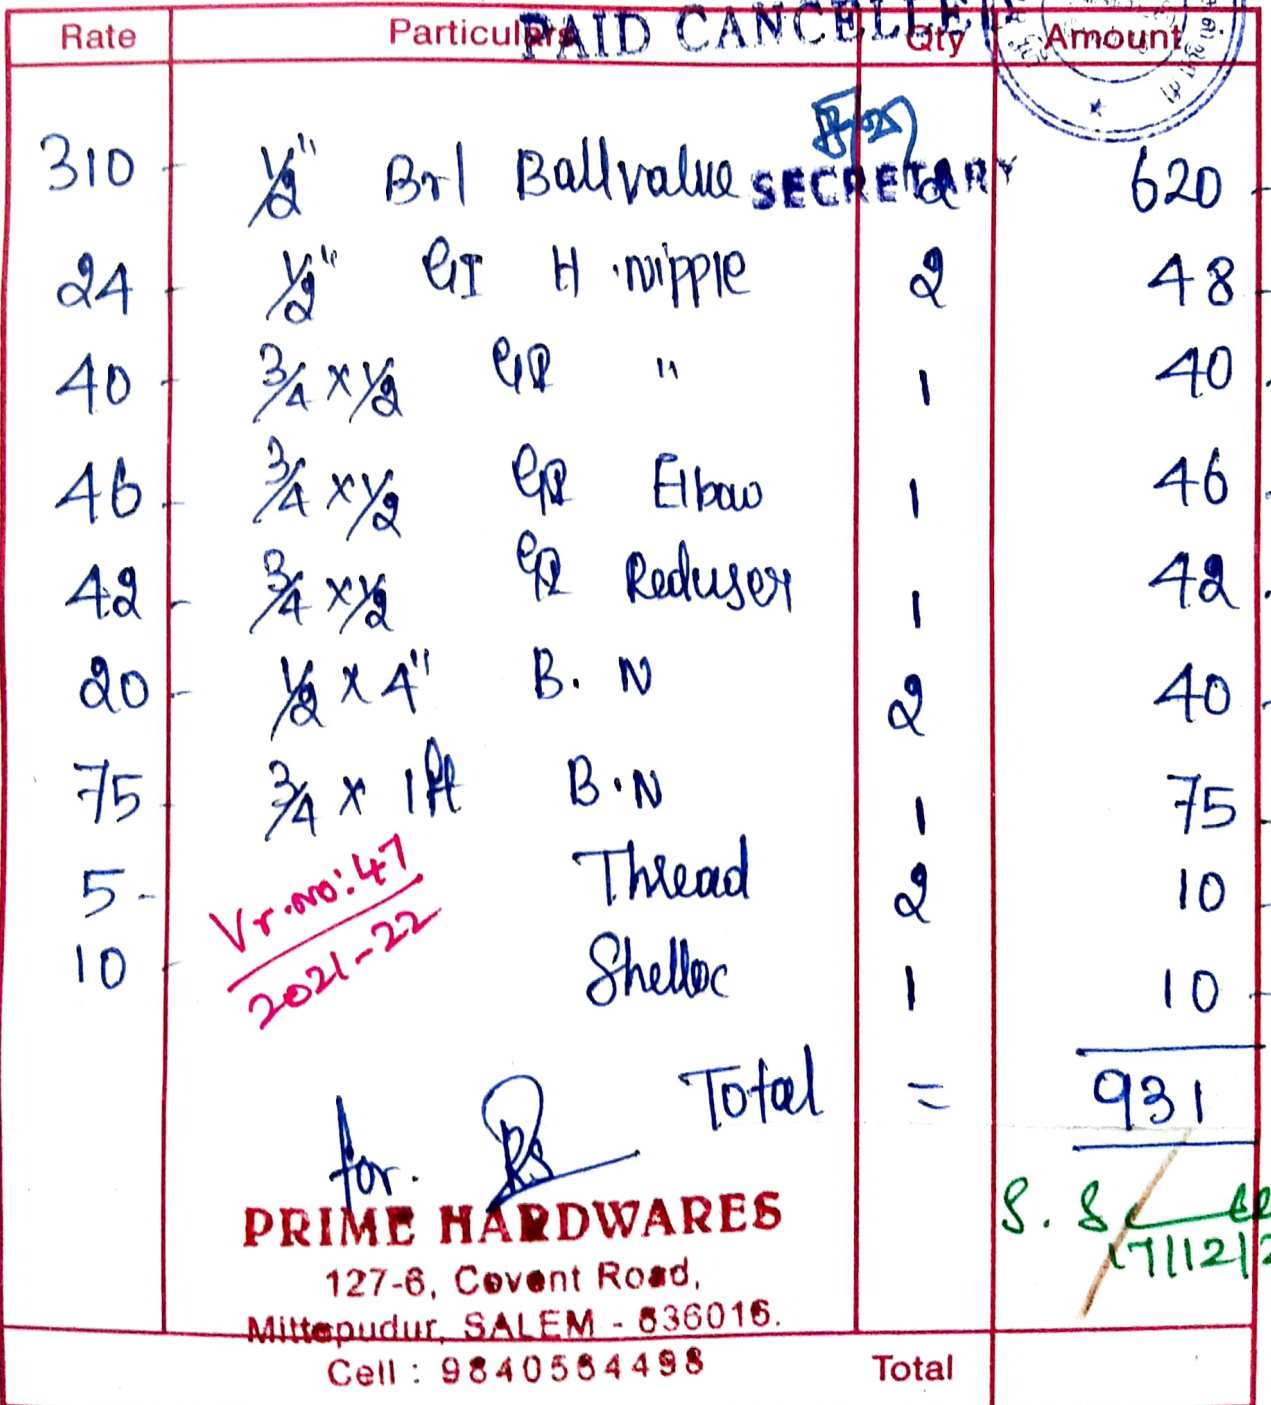 PAID CANCELLE
Rate Particulars Qty Amount
310 - 1/2" Brl Ballvalue 2 620 -
SECRETARY
24 - 1/2" GI H.nipple 2 48 -
40 - 3/4 x 1/2 GI " 1 40 -
46 - 3/4 x 1/2 GI Elbow 1 46 -
42 - 3/4 x 1/2 GI Reduser 1 42 -
20 - 1/2 x 4" B.N 2 40 -
75 - 3/4 x 1ft B.N 1 75 -
5 - Thread 2 10 -
10 - Shellac 1 10 -
Vr.no: 47
2021-22
Total = 931
for.
PRIME HARDWARES
127-6, Covent Road,
Mittapudur, SALEM - 636016.
Cell : 9840564498
17/12/2
Total